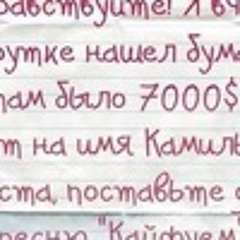 равствуйте! Я вч
рутке нашел бум
там было 7000$
т на имя Камиль
ста, поставьте
песню "Кайфуем